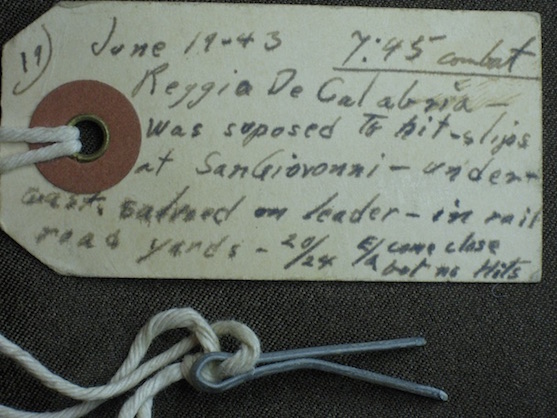 19) June 19-43 7:45 combat
Reggia De Calabria -
Was suposed To hit ships
at SanGiovonni - under-
cast. on leader - in rail
road yards - 20/24 E/A come close
but no Hits